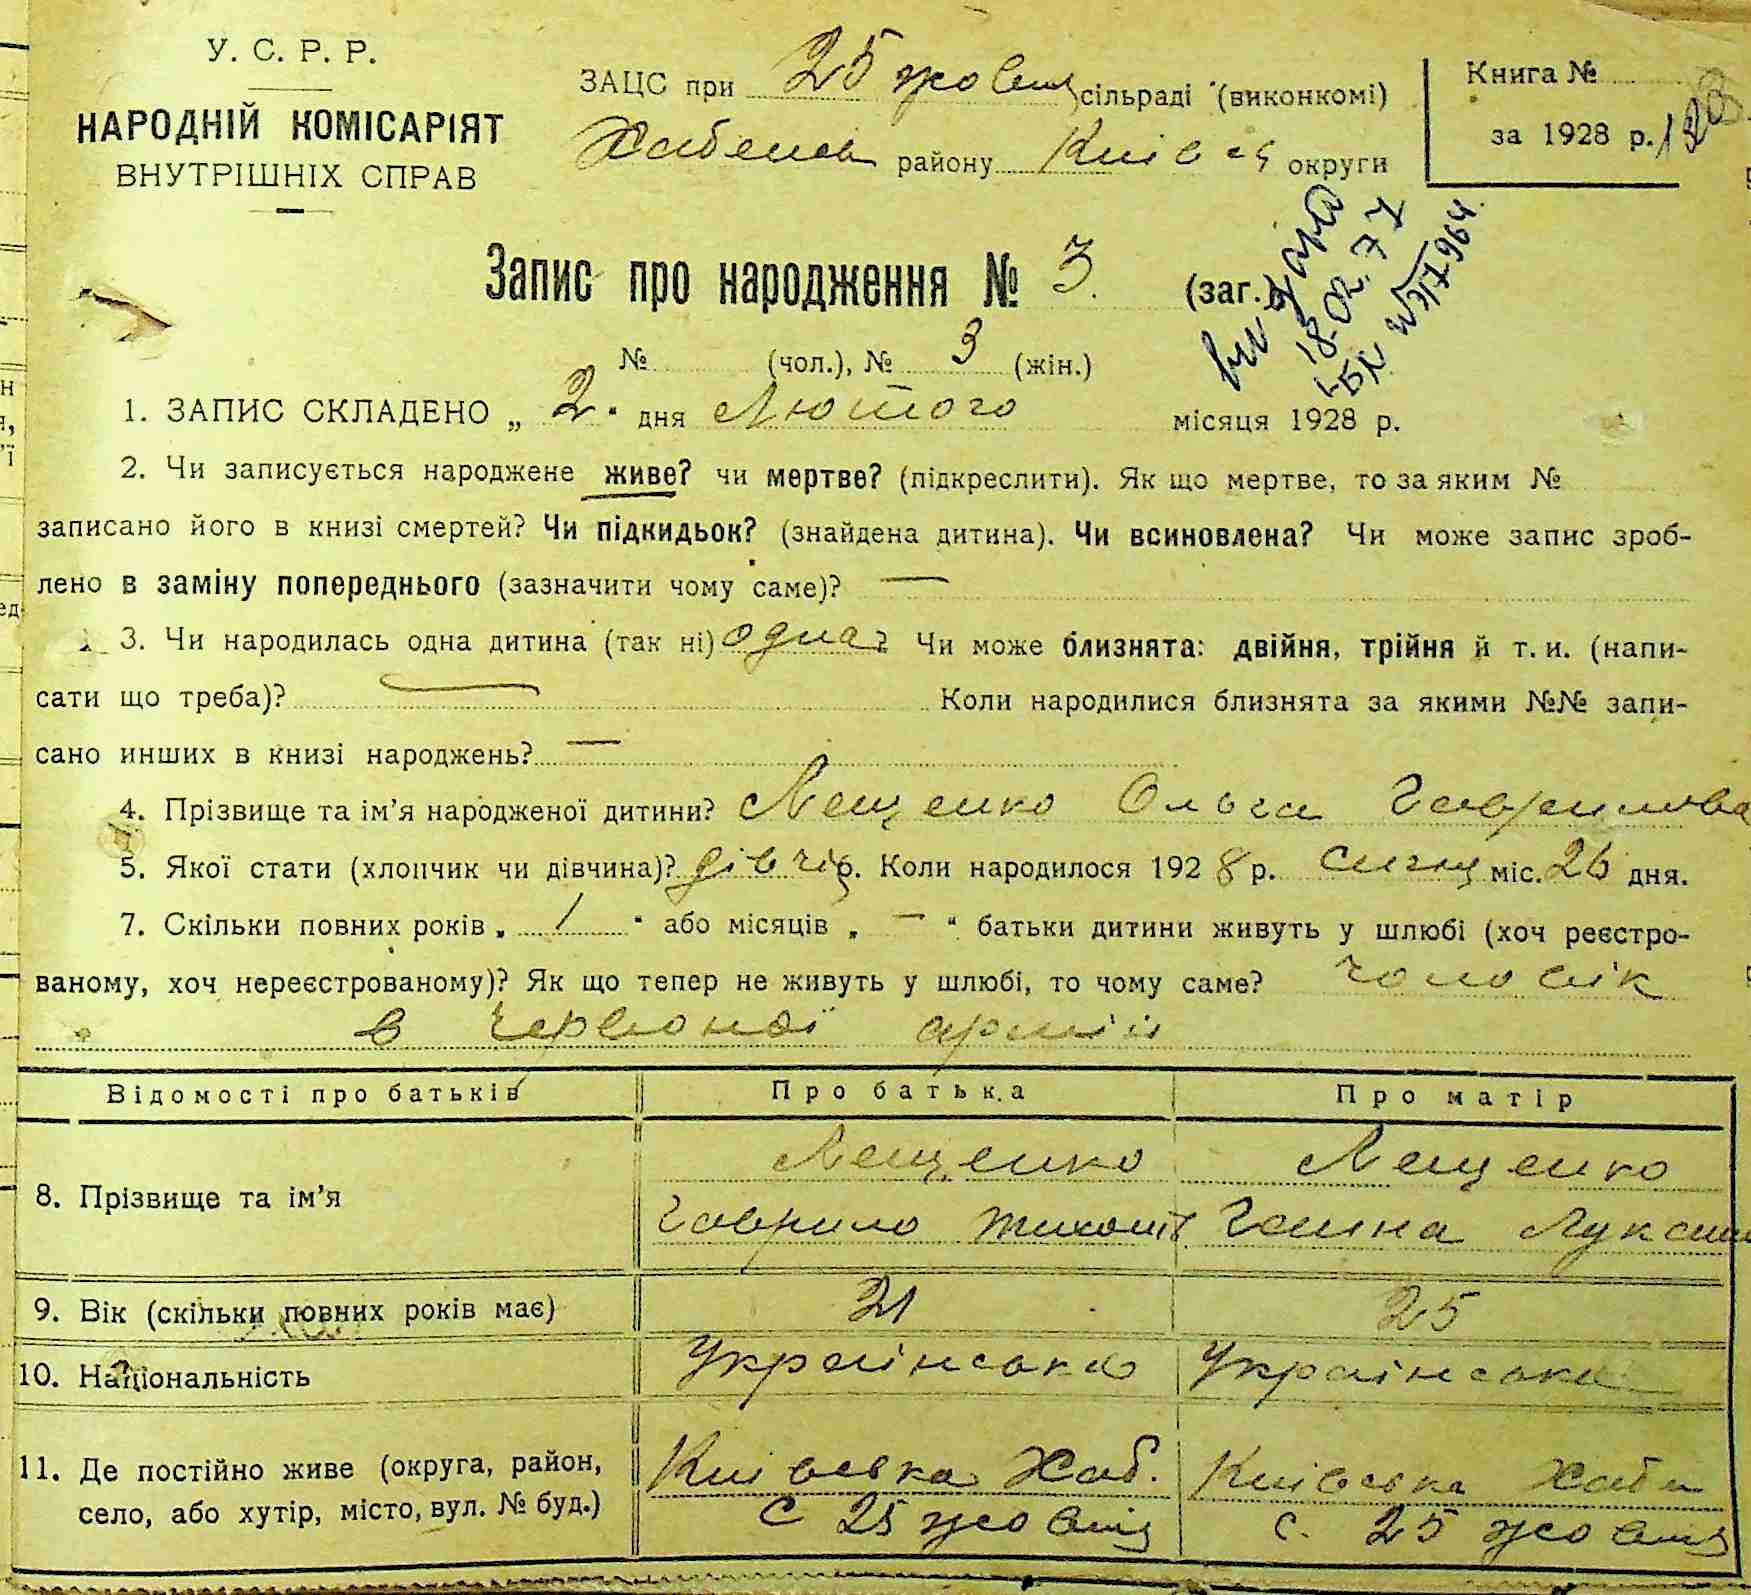 У. С. Р. Р.
НАРОДНІЙ КОМІСАРІЯТ
ВНУТРІШНІХ СПРАВ
ЗАЦС при 25 жовтня сільраді (виконкомі)
Хабенськ району Київськ округи
Книга №
за 1928 р.
Запис про народження № 3. (заг.)
18.02.77
№ (чол.), № 3 (жін.)
1. ЗАПИС СКЛАДЕНО „ 2 " дня Лютого місяця 1928 р.
2. Чи записується народжене живе? чи мертве? (підкреслити). Як що мертве, то за яким №
записано його в книзі смертей? Чи підкидьок? (знайдена дитина). Чи всиновлена? Чи може запис зроб-
лено в заміну попереднього (зазначити чому саме)? —
3. Чи народилась одна дитина (так ні) одна? Чи може близнята: двійня, трійня й т. и. (напи-
сати що треба)? — Коли народилися близнята за якими №№ запи-
сано инших в книзі народжень? —
4. Прізвище та ім'я народженої дитини? Лещенко Ольга Гаврилова
5. Якої стати (хлопчик чи дівчина)? дівчин. Коли народилося 1928 р. січня міс. 26 дня.
7. Скільки повних років „ 1 " або місяців „ — " батьки дитини живуть у шлюбі (хоч реєстро-
ваному, хоч нереєстрованому)? Як що тепер не живуть у шлюбі, то чому саме? чоловік
в Червоній армії
Відомості про батьків Про батька Про матір
8. Прізвище та ім'я Лещенко Лещенко
Гаврило Ганна
9. Вік (скільки повних років має) 21 25
10. Національність Українська Українська
11. Де постійно живе (округа, район, Київська Хаб. Київська Хабен
село, або хутір, місто, вул. № буд.) с 25 жовтня с. 25 жовтня